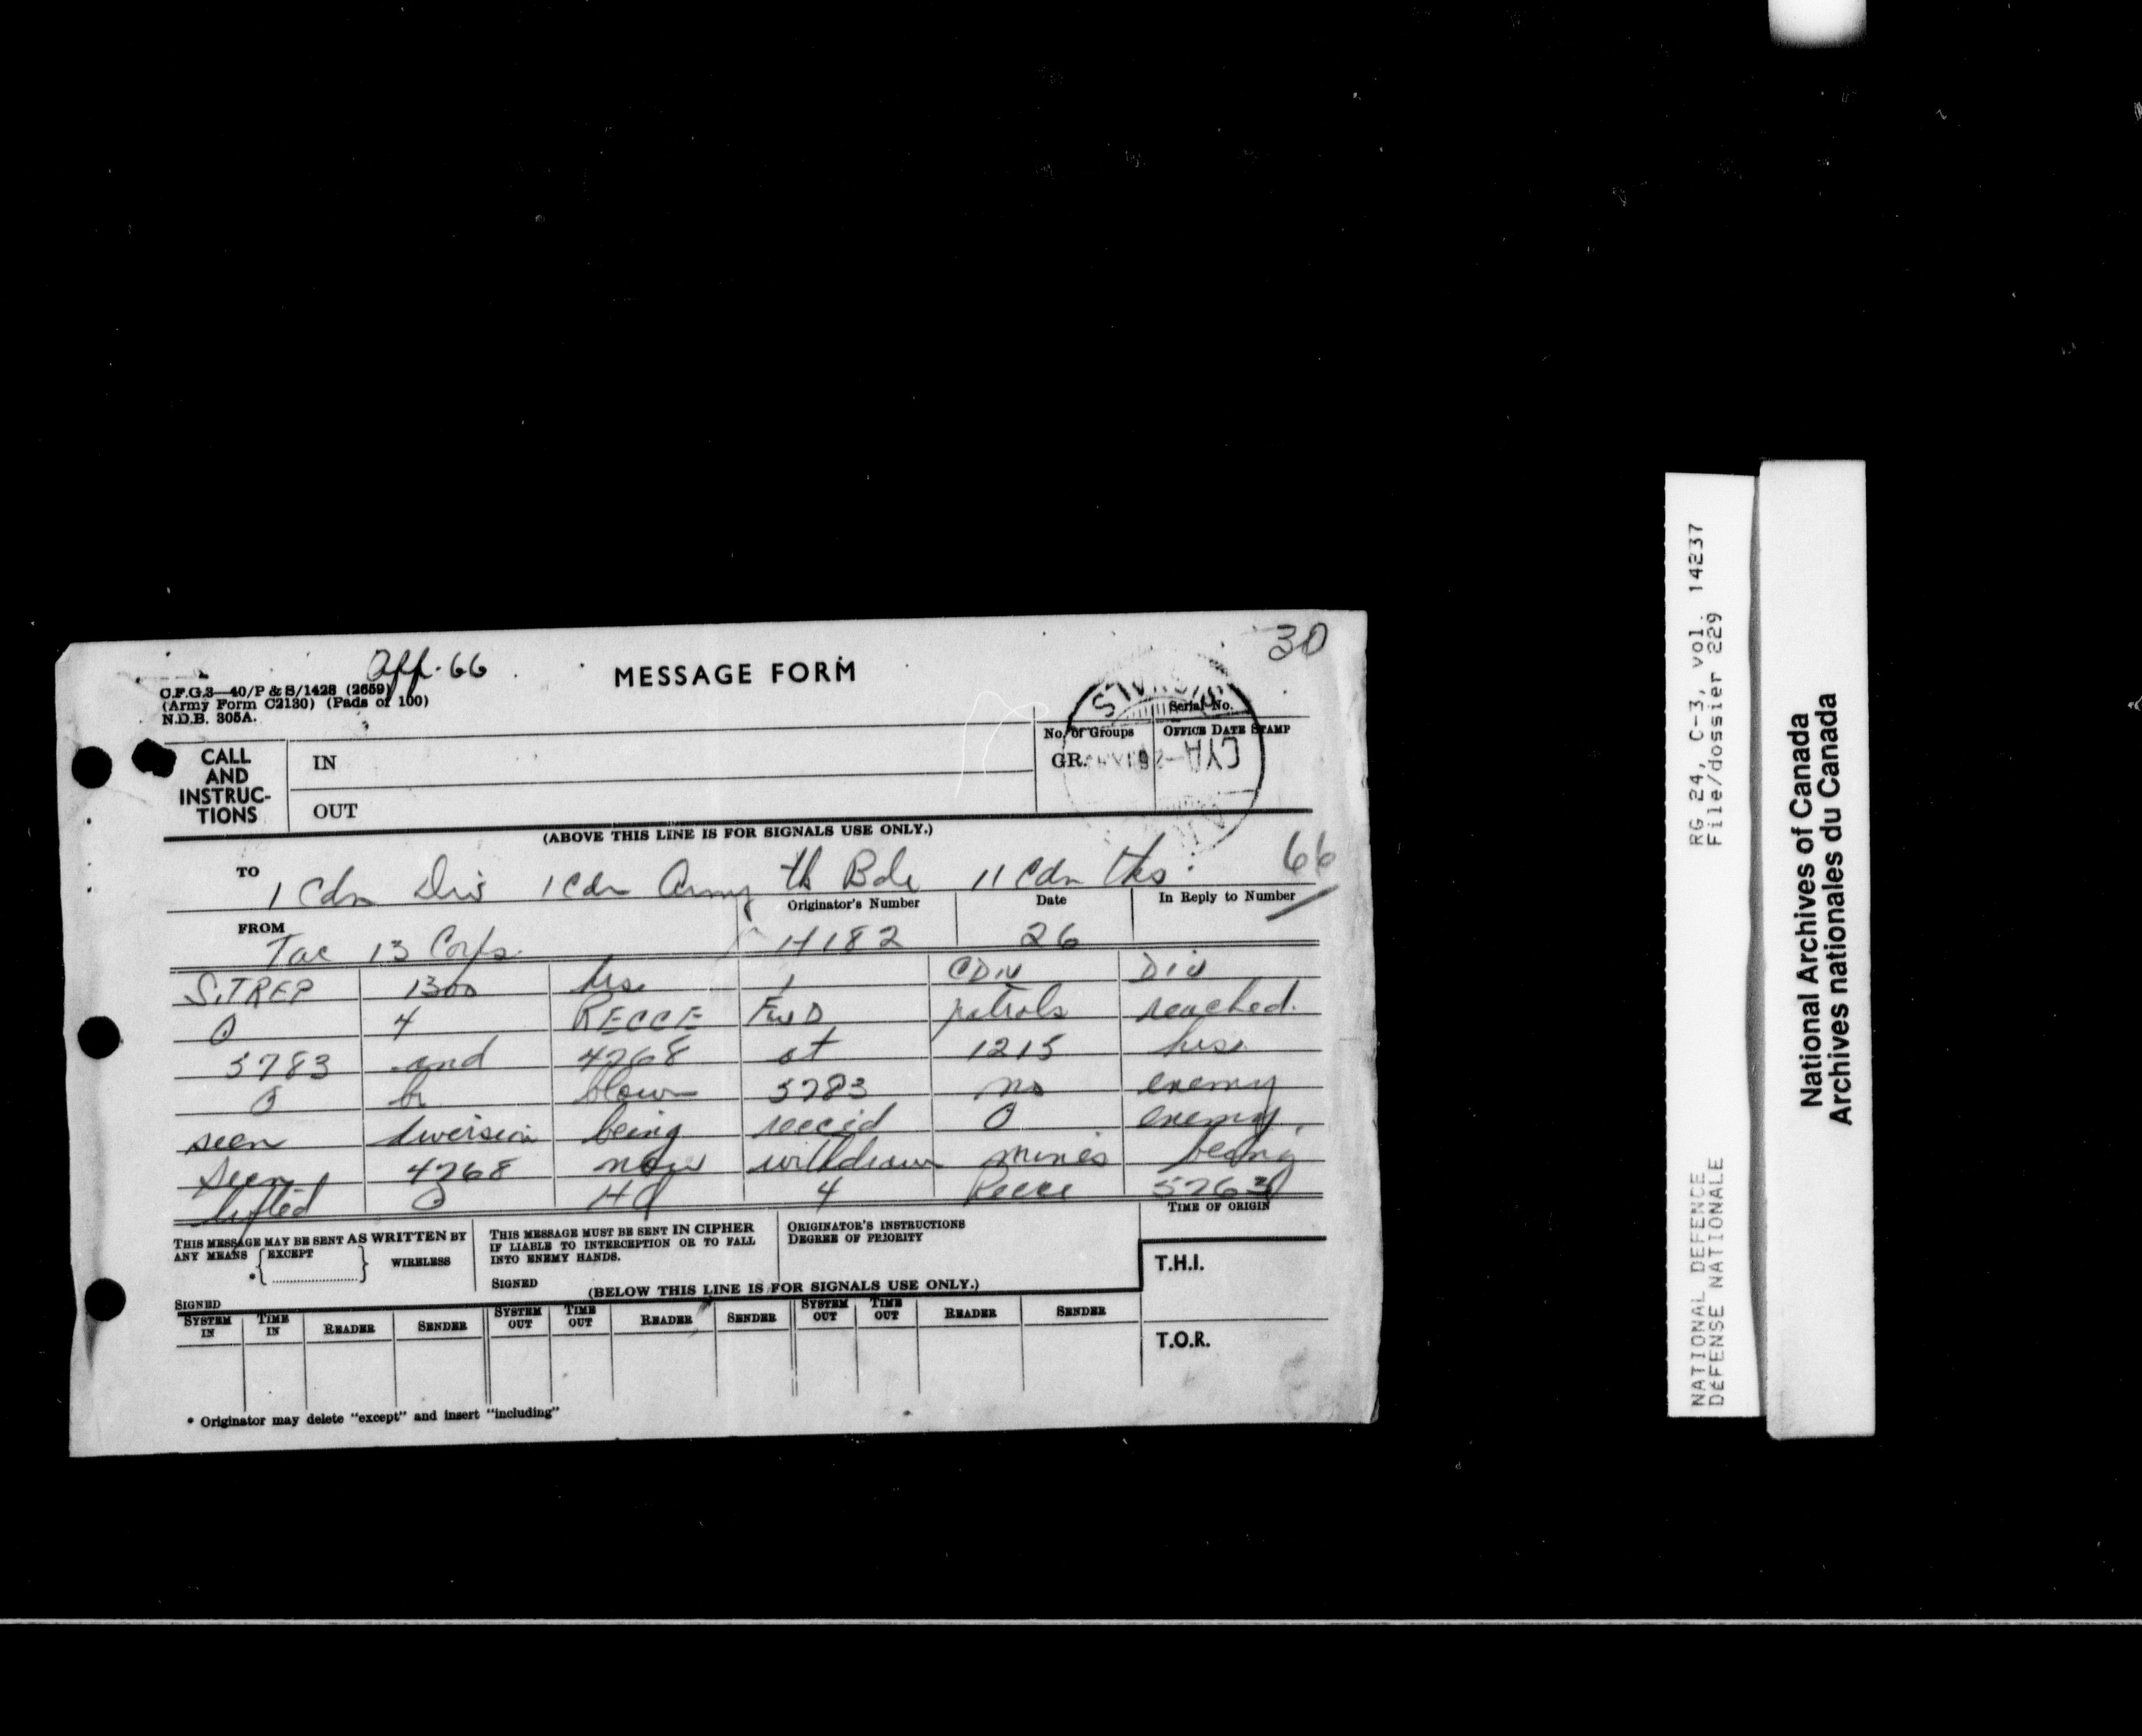 30
App. 66
MESSAGE FORM
C.F.G.3—40/P & S/1428 (2659)
(Army Form C2130) (Pads of 100)
N.D.B. 305A.
SIGNALS
Serial No.
No. of Groups
OFFICE DATE STAMP
GR.
CALL AND INSTRUC-TIONS
IN
OUT
(ABOVE THIS LINE IS FOR SIGNALS USE ONLY.)
66
TO 1 Cdn Div 1 Cdn Army tk Bde 11 Cdn tks
Originator's Number
Date
In Reply to Number
FROM Tac 13 Corps H182 26
SITREP 1300 hrs 1 CDN Div
O 4 RECCE FWD patrols reached.
5783 and 4768 at 1215 hrs.
O br blown 5783 no enemy
seen diversion being reccid O enemy
seen 4768 now withdrawn mines being
lifted O HQ 4 Recce 5763
TIME OF ORIGIN
THIS MESSAGE MAY BE SENT AS WRITTEN BY
ANY MEANS EXCEPT WIRELESS
SIGNED
THIS MESSAGE MUST BE SENT IN CIPHER
IF LIABLE TO INTERCEPTION OR TO FALL
INTO ENEMY HANDS.
SIGNED
ORIGINATOR'S INSTRUCTIONS
DEGREE OF PRIORITY
T.H.I.
(BELOW THIS LINE IS FOR SIGNALS USE ONLY.)
SYSTEM IN TIME IN READER SENDER SYSTEM OUT TIME OUT READER SENDER SYSTEM OUT TIME OUT READER SENDER
T.O.R.
* Originator may delete "except" and insert "including"
RG 24, C-3, vol. 14237
File/dossier 229
NATIONAL DEFENCE
DÉFENSE NATIONALE
National Archives of Canada
Archives nationales du Canada